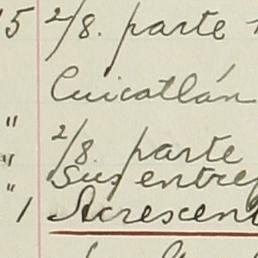 15 2/8. parte
Cuicatlán
" 2/8. parte
" Sus entre
" 1 Acrescent